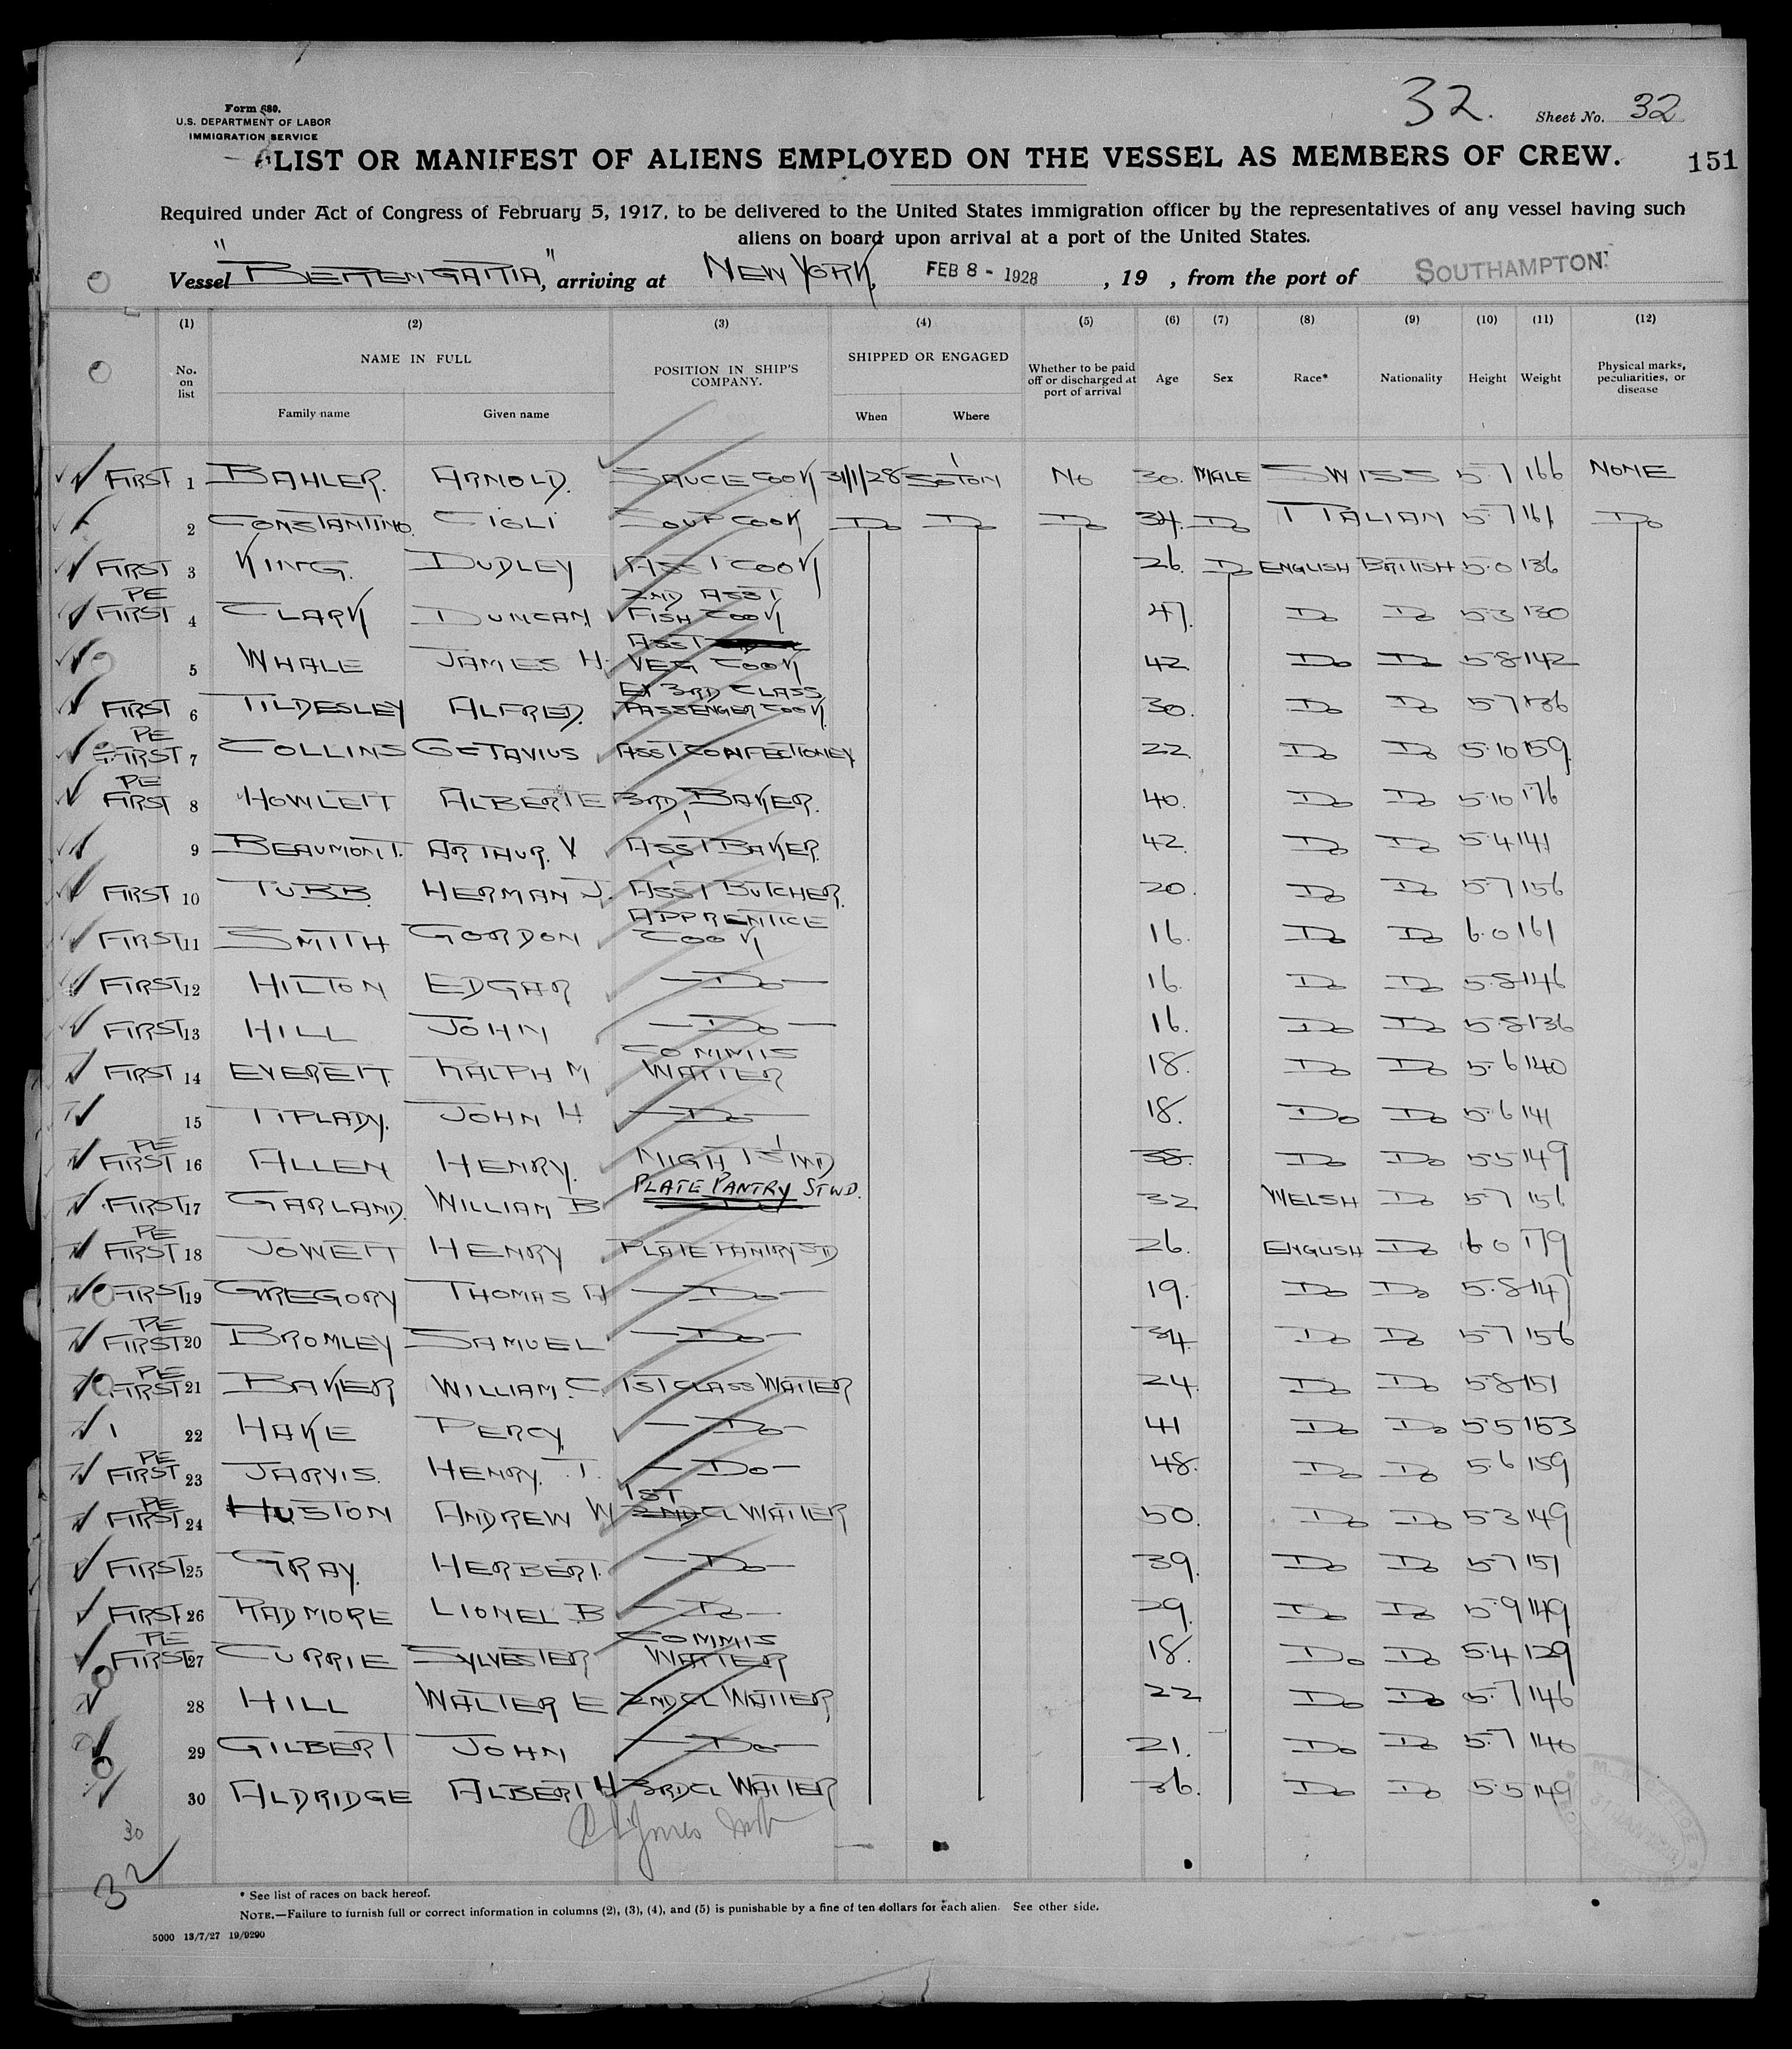 32. Sheet No. 32
Form 680.
U.S. DEPARTMENT OF LABOR
IMMIGRATION SERVICE
LIST OR MANIFEST OF ALIENS EMPLOYED ON THE VESSEL AS MEMBERS OF CREW. 151
Required under Act of Congress of February 5, 1917, to be delivered to the United States immigration officer by the representatives of any vessel having such
aliens on board upon arrival at a port of the United States.
Vessel "BERENGARIA", arriving at NEW YORK, FEB 8 - 1928, 19 , from the port of SOUTHAMPTON
(1) (2) (3) (4) (5) (6) (7) (8) (9) (10) (11) (12)
No. on list NAME IN FULL POSITION IN SHIP'S COMPANY. SHIPPED OR ENGAGED Whether to be paid off or discharged at port of arrival Age Sex Race* Nationality Height Weight Physical marks, peculiarities, or disease
Family name Given name When Where
FIRST 1 BAHLER. ARNOLD. SAUCE COOK 31/1/28 SO'TON NO 30. MALE SWISS 5.7 166 NONE
2 CONSTANTINO. CIGLI SOUP COOK DO DO DO 34. DO ITALIAN 5.7 161 DO
FIRST 3 KING. DUDLEY ASS'T COOK 26. DO ENGLISH BRITISH 5.0 136
PE FIRST 4 CLARK DUNCAN 2ND ASST FISH COOK 47. DO DO 5.3 130
5 WHALE JAMES H. ASST VEG COOK 42 DO DO 5.8 142
FIRST 6 TILDESLEY ALFRED. EX 3RD CLASS PASSENGER COOK 30. DO DO 5.7 136
PE FIRST 7 COLLINS OCTAVIUS ASST CONFECTIONER 22 DO DO 5.10 159
PE FIRST 8 HOWLETT ALBERT E 3RD BAKER. 40. DO DO 5.10 176
9 BEAUMONT. ARTHUR. V ASS'T BAKER. 42. DO DO 5.4 141
FIRST 10 TUBB. HERMAN J. ASS'T BUTCHER. 20. DO DO 5.7 156
FIRST 11 SMITH GORDON APPRENTICE COOK 16. DO DO 6.0 161
FIRST 12 HILTON EDGAR —DO— 16. DO DO 5.8 146
FIRST 13 HILL JOHN —DO— 16. DO DO 5.8 136
FIRST 14 EVERETT. RALPH M COMMIS WAITER 18. DO DO 5.6 140
15 TIPLADY. JOHN H —DO— 18. DO DO 5.6 141
PE FIRST 16 ALLEN HENRY. NIGHT ST'WD 38. DO DO 5.5 149
FIRST 17 GARLAND. WILLIAM B PLATE PANTRY STWD. 32 WELSH DO 5.7 156
PE FIRST 18 JOWETT HENRY PLATE PANTRY STD 26. ENGLISH DO 6.0 179
FIRST 19 GREGORY THOMAS A —DO— 19. DO DO 5.8 147
PE FIRST 20 BROMLEY SAMUEL —DO— 34. DO DO 5.7 156
PE FIRST 21 BAKER WILLIAM. C. 1ST CLASS WAITER 24. DO DO 5.8 151
22 HAKE PERCY. —DO— 41 DO DO 5.5 153
PE FIRST 23 JARVIS. HENRY. T. —DO— 48. DO DO 5.6 159
PE FIRST 24 HUSTON ANDREW W 1ST 2ND CL WAITER 50. DO DO 5.3 149
FIRST 25 GRAY. HERBERT. —DO— 39. DO DO 5.7 151
FIRST 26 RADMORE LIONEL B —DO— 29. DO DO 5.9 149
PE FIRST 27 CURRIE SYLVESTER COMMIS WAITER 18. DO DO 5.4 129
28 HILL WALTER E 2ND CL WAITER 22 DO DO 5.7 146
29 GILBERT JOHN —DO— 21. DO DO 5.7 140
30 ALDRIDGE ALBERT H 3RD CL WAITER 36. DO DO 5.5 149
30
32
* See list of races on back hereof.
NOTE.—Failure to furnish full or correct information in columns (2), (3), (4), and (5) is punishable by a fine of ten dollars for each alien. See other side.
5000 13/7/27 19/9290